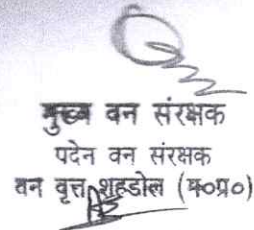 मुख्य वन संरक्षक
पदेन वन संरक्षक
वन वृत्त शहडोल (म०प्र०)